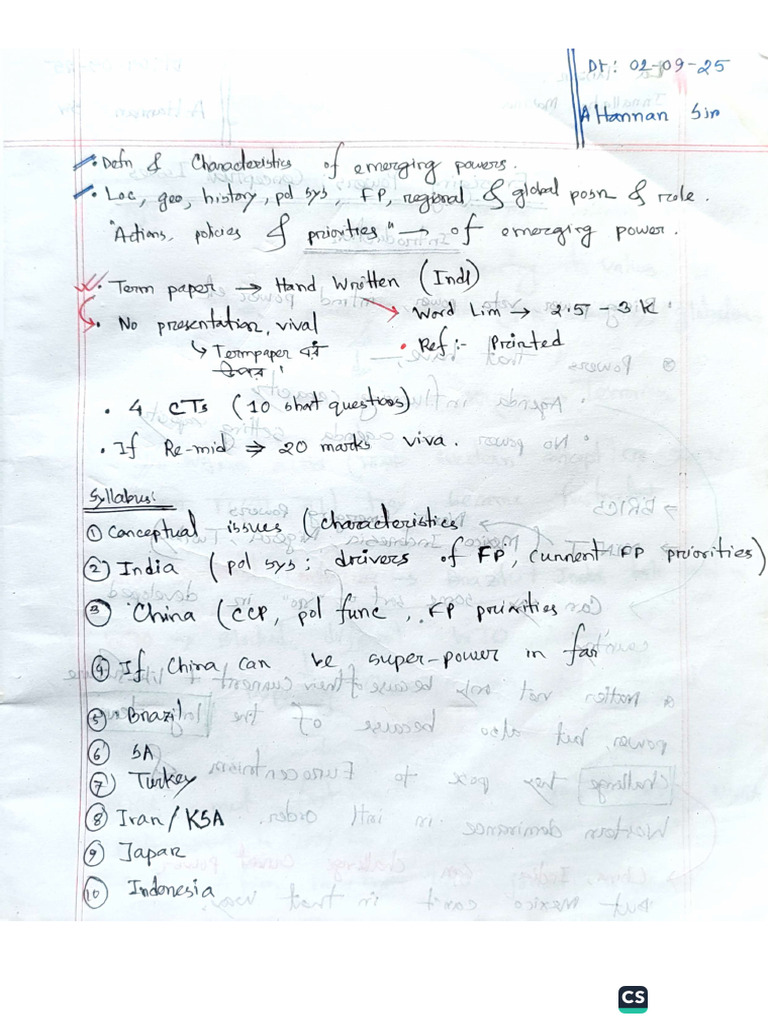 Dt: 02-09-25
A Hannan Sir
• Defn & Characteristics of emerging powers.
• Loc, geo, history, pol sys, FP, regional & global posn & role.
"Actions, policies & priorities" → of emerging power.
• Term paper → Hand Written (Indl)
• Word Lim → 2.5 – 3 K
• No presentation, vival
• Ref :- Printed
↳ Termpaper এর
উপর।
• 4 CTs (10 short questions)
• If Re-mid ⇒ 20 marks viva.
Syllabus:
① Conceptual issues (characteristics
② India (pol sys; drivers of FP, current FP priorities)
③ China (CCP, pol func, FP priorities
④ If China can be super-power in
⑤ Brazil
⑥ SA
⑦ Turkey
⑧ Iran/KSA
⑨ Japan
⑩ Indonesia
CS